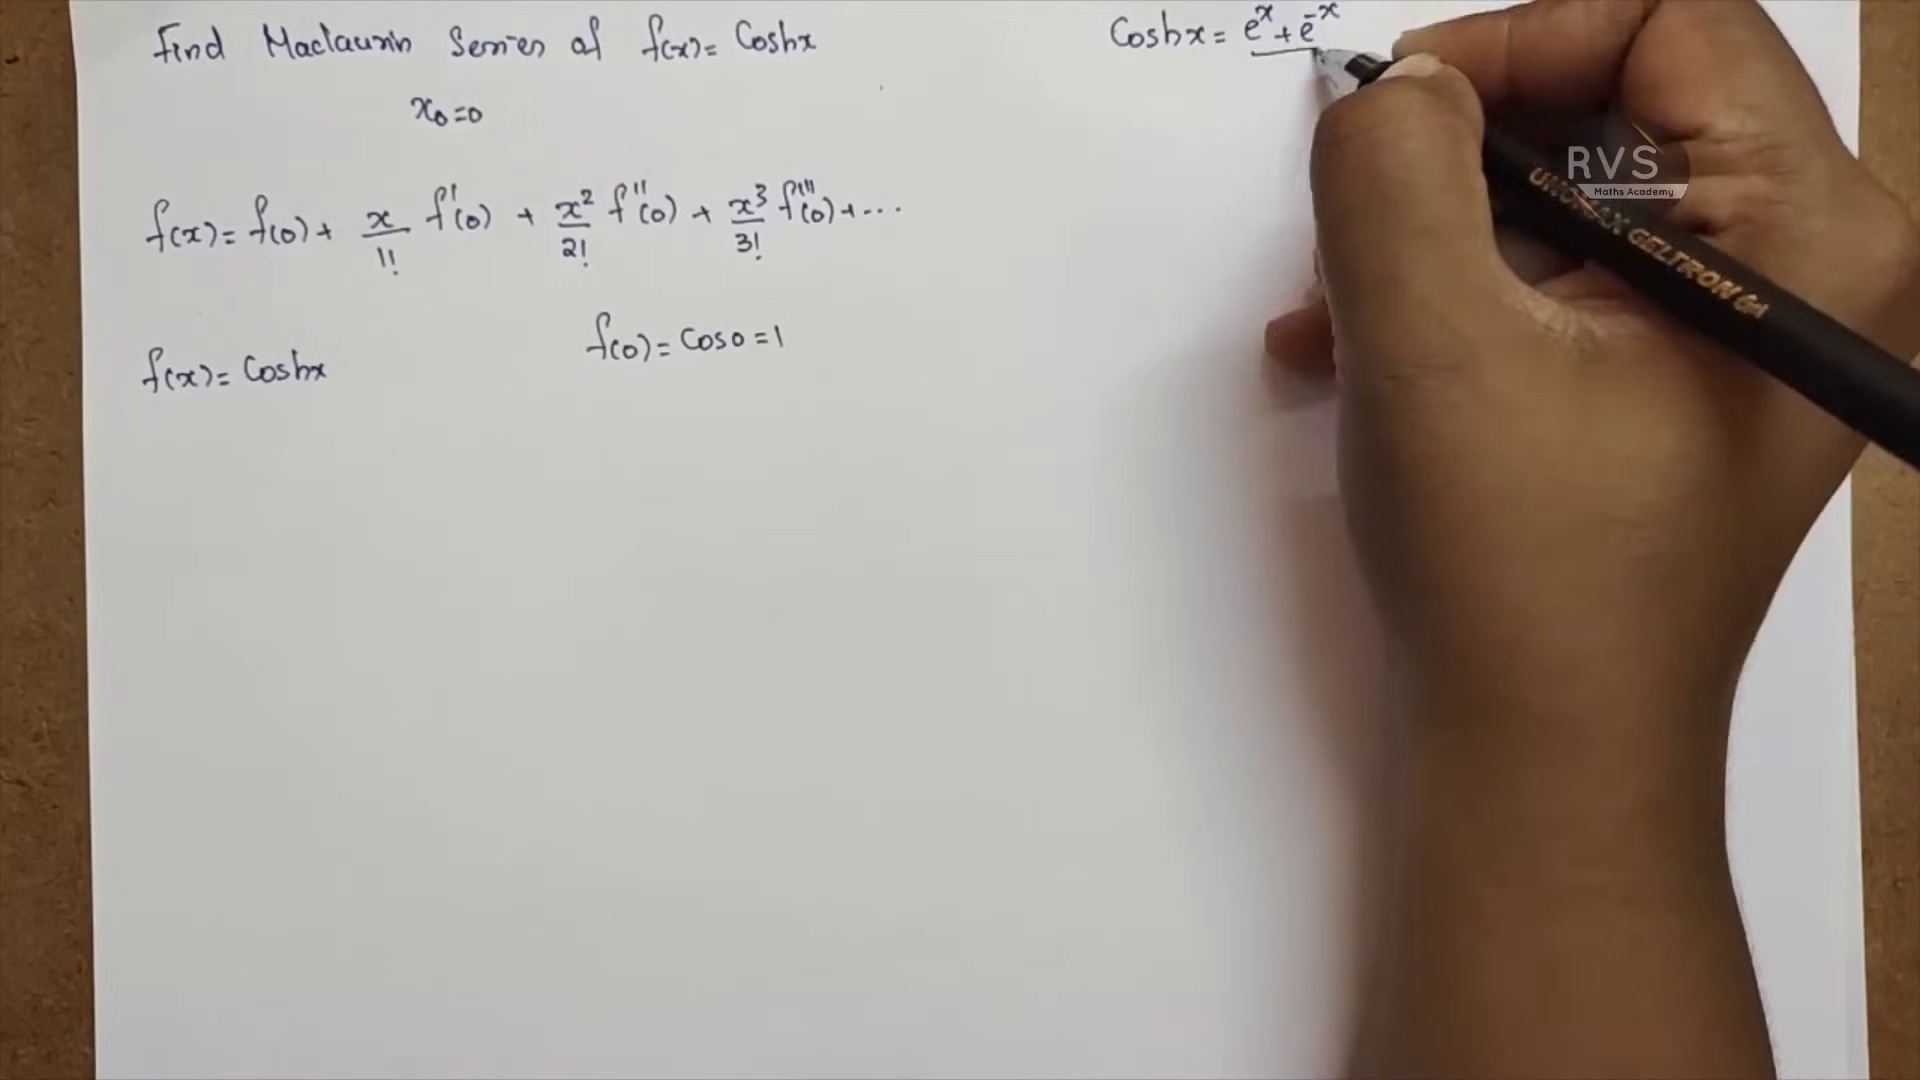 Find Maclaurin Series of f(x) = Coshx
x₀=0
f(x) = f(0) + x/1! f'(0) + x²/2! f''(0) + x³/3! f'''(0) + ...
f(x) = Coshx
f(0) = Cos0 = 1
Coshx = e^x + e^-x
RVS
Maths Academy
UNOMAX GELTRON GT